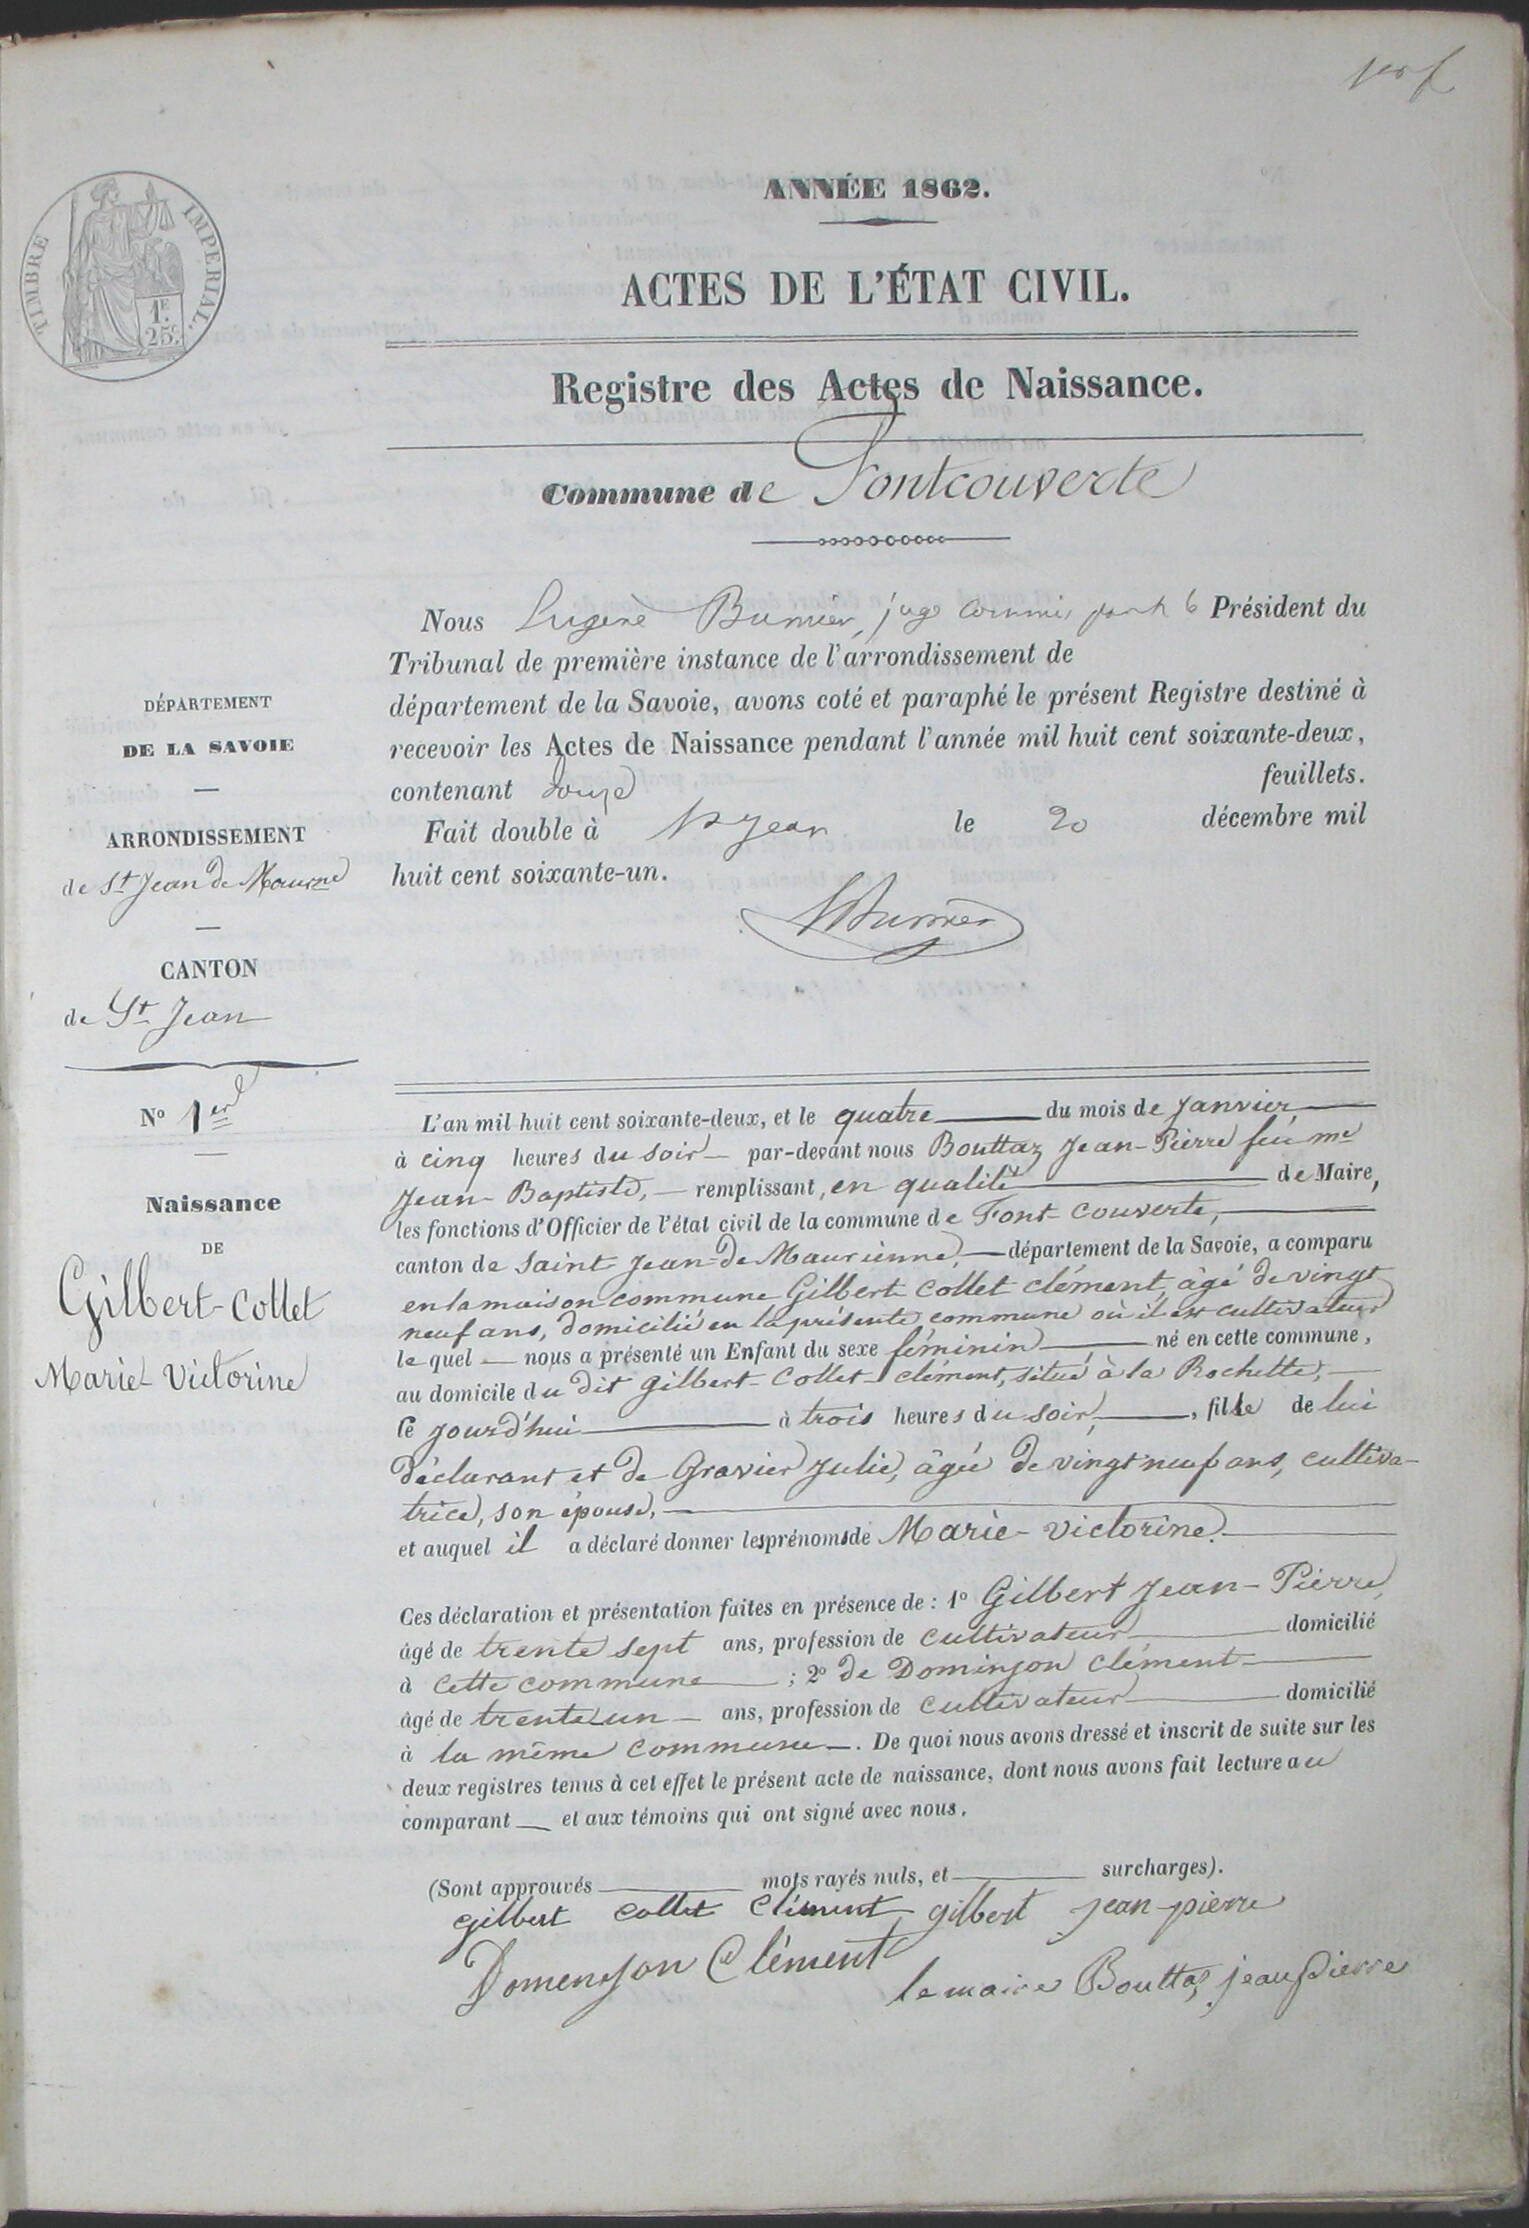 1er f
ANNÉE 1862.
TIMBRE IMPERIAL.
1F.
25c.
ACTES DE L'ÉTAT CIVIL.
Registre des Actes de Naissance.
Commune de Fontcouverte
Nous Eugène Burnier, juge commis par le Président du
Tribunal de première instance de l'arrondissement de
département de la Savoie, avons coté et paraphé le présent Registre destiné à
recevoir les Actes de Naissance pendant l'année mil huit cent soixante-deux,
contenant douze feuillets.
Fait double à St Jean le 20 décembre mil
huit cent soixante-un.
Burnier
DÉPARTEMENT
DE LA SAVOIE
ARRONDISSEMENT
de St Jean de Maurne
CANTON
de St Jean
No 1er
Naissance
DE
Gilbert-Collet
Marie-Victorine
L'an mil huit cent soixante-deux, et le quatre du mois de Janvier
à cinq heures du soir par-devant nous Bouttaz Jean-Pierre feu me
Jean-Baptiste, remplissant, en qualité de Maire,
les fonctions d'Officier de l'état civil de la commune de Font-Couverte,
canton de Saint-Jean-de Maurienne, département de la Savoie, a comparu
en la maison commune Gilbert-Collet clément, âgé de vingt
neuf ans, domicilié en la présente commune où il est cultivateur
le quel nous a présenté un Enfant du sexe féminin né en cette commune,
au domicile du dit Gilbert-Collet-clément, situé à la Rochette,
Ce jourd'hui à trois heures du soir, fille de lui
déclarant et de Gravier Julie, âgée de vingt neuf ans, cultiva-
trice, son épouse,
et auquel il a déclaré donner les prénoms de Marie-Victorine.
Ces déclaration et présentation faites en présence de : 1o Gilbert Jean-Pierre,
âgé de trente sept ans, profession de cultivateur domicilié
à cette commune ; 2o de Dominjon clément
âgé de trente un ans, profession de cultivateur domicilié
à la même commune. De quoi nous avons dressé et inscrit de suite sur les
deux registres tenus à cet effet le présent acte de naissance, dont nous avons fait lecture au
comparant et aux témoins qui ont signé avec nous.
(Sont approuvés mots rayés nuls, et surcharges).
gilbert collet clément gilbert jean pierre
Domenjon Clément
le maire Bouttaz jean pierre